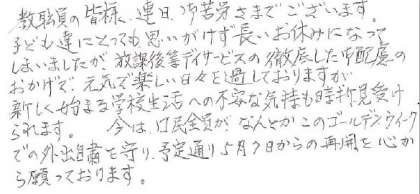 教職員の皆様、連日お苦労さまでございます。
子ども達にとっても思いがけず長いお休みになって
しまいましたが、放課後等デイサービスの徹底した御配慮の
おかげで、元気で楽しい日々を過しておりますが
新しく始まる学校生活への不安な気持も時折見受け
られます。 今は、国民全員がなんとかこのゴールデンウィーク
での外出自粛を守り、予定通り5月7日からの再開を心か
ら願っております。